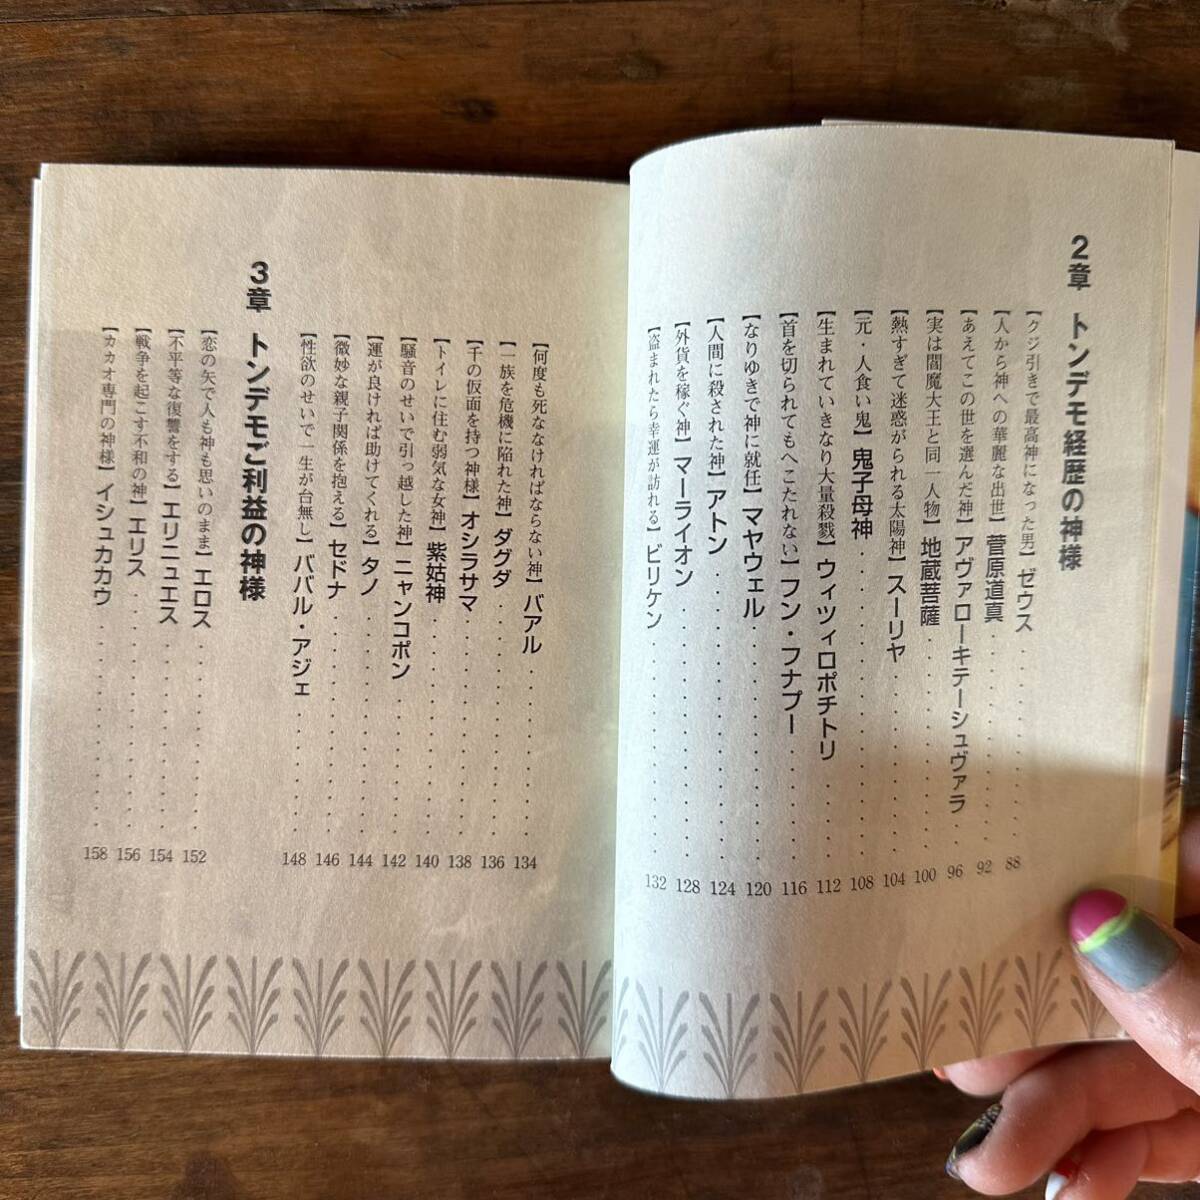 2章 トンデモ経歴の神様
【クジ引きで最高神になった男】ゼウス 88
【人から神への華麗な出世】菅原道真 92
【あえてこの世を選んだ神】アヴァローキテーシュヴァラ 96
【実は閻魔大王と同一人物】地蔵菩薩 100
【熱すぎて迷惑がられる太陽神】スーリヤ 104
【元・人食い鬼】鬼子母神 108
【生まれていきなり大量殺戮】ウィツィロポチトリ 112
【首を切られてもへこたれない】フン・フナプー 116
【なりゆきで神に就任】マヤウェル 120
【人間に殺された神】アトン 124
【外貨を稼ぐ神】マーライオン 128
【盗まれたら幸運が訪れる】ビリケン 132
【何度も死ななければならない神】バアル 134
【一族を危機に陥れた神】ダグダ 136
【千の仮面を持つ神様】オシラサマ 138
【トイレに住む弱気な女神】紫姑神 140
【騒音のせいで引っ越した神】ニャンコポン 142
【運が良ければ助けてくれる】タノ 144
【微妙な親子関係を抱える】セドナ 146
【性欲のせいで一生が台無し】ババル・アジェ 148
3章 トンデモご利益の神様
【恋の矢で人も神も思いのまま】エロス 152
【不平等な復讐をする】エリニュエス 154
【戦争を起こす不和の神】エリス 156
【カカオ専門の神様】イシュカカウ 158